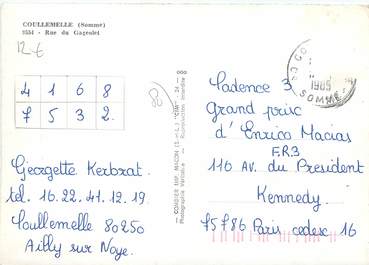 COULLEMELLE (Somme)
9554 - Rue du Gagedet
12 €
4 1 6 8
7 5 3 2.
80
Georgette Kerbrat.
tel. 16.22.41.12.19
Coullemelle 80250
Ailly sur Noye.
COMBIER IMP. MACON (S.-L.) "CIM"
Photographie Véritable - Reproduction interdite
80 CO
1985
SOMME
Cadence 3
Grand prix
d'Enrico Macias
F.R.3
116 AV. du President
Kennedy.
75786 Paris cedex 16